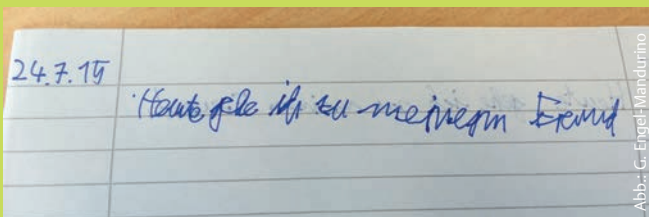 24.7.15
Heute gehe ich zu meinem Freund
Abb.: G. Engel-Mandurino